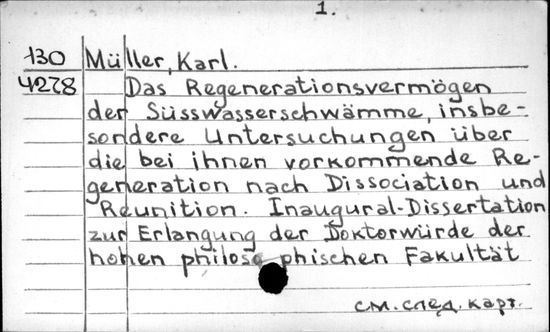 1.
130 Müller, Karl.
4278 Das Regenerationsvermögen
der Süsswasserschwämme, insbe-
sondere Untersuchungen über
die bei ihnen vorkommende Re-
generation nach Dissociation und
Reunition. Inaugural-Dissertation
zur Erlangung der Doktorwürde der
hohen philosophischen Fakultät
см. след. карт.